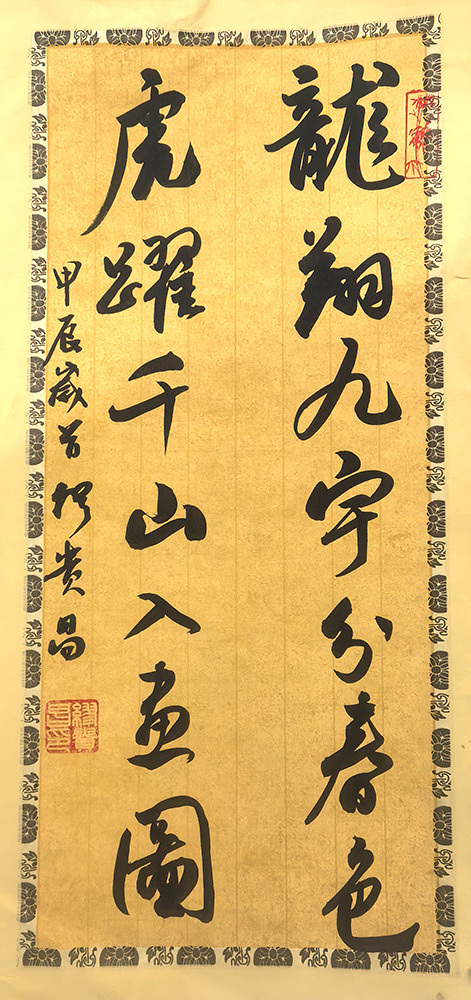 龍翔九宇分春色
虎躍千山入畫圖
甲辰歲首 貴昌